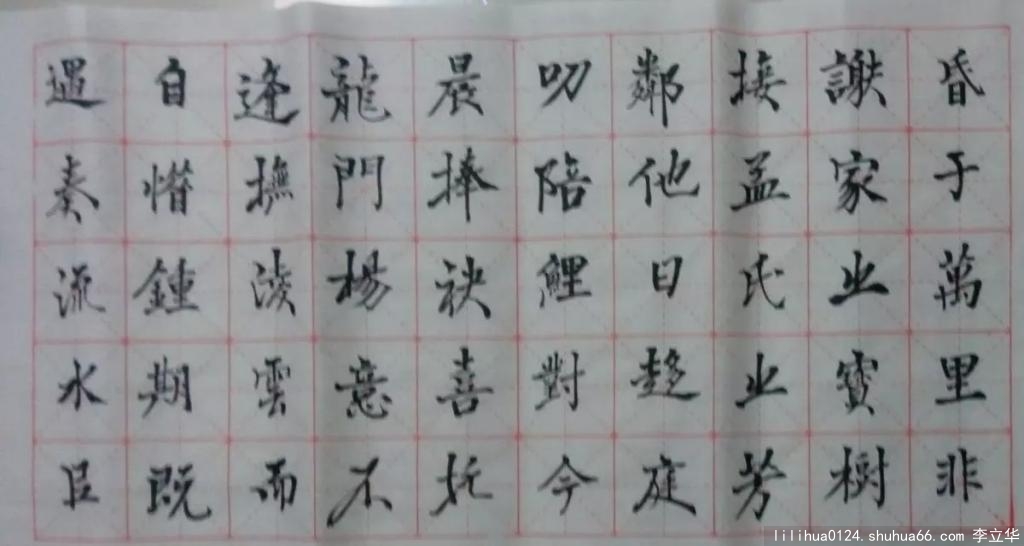 昏于萬里非
謝家之寶樹
接孟氏之芳
鄰他日趍庭
叨陪鯉對今
晨捧袂喜托
龍門楊意不
逢撫淩雲而
自惜鍾期既
遇奏流水㠯
lilihua0124.shuhua66.com 李立华